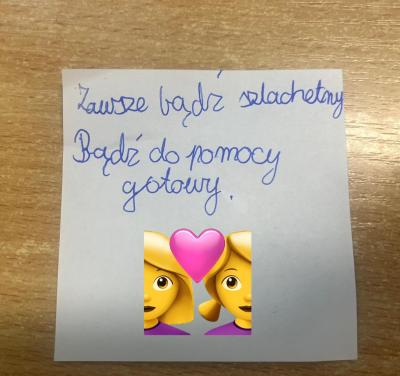 Zawsze bądź szlachetny
Bądź do pomocy
gotowy.